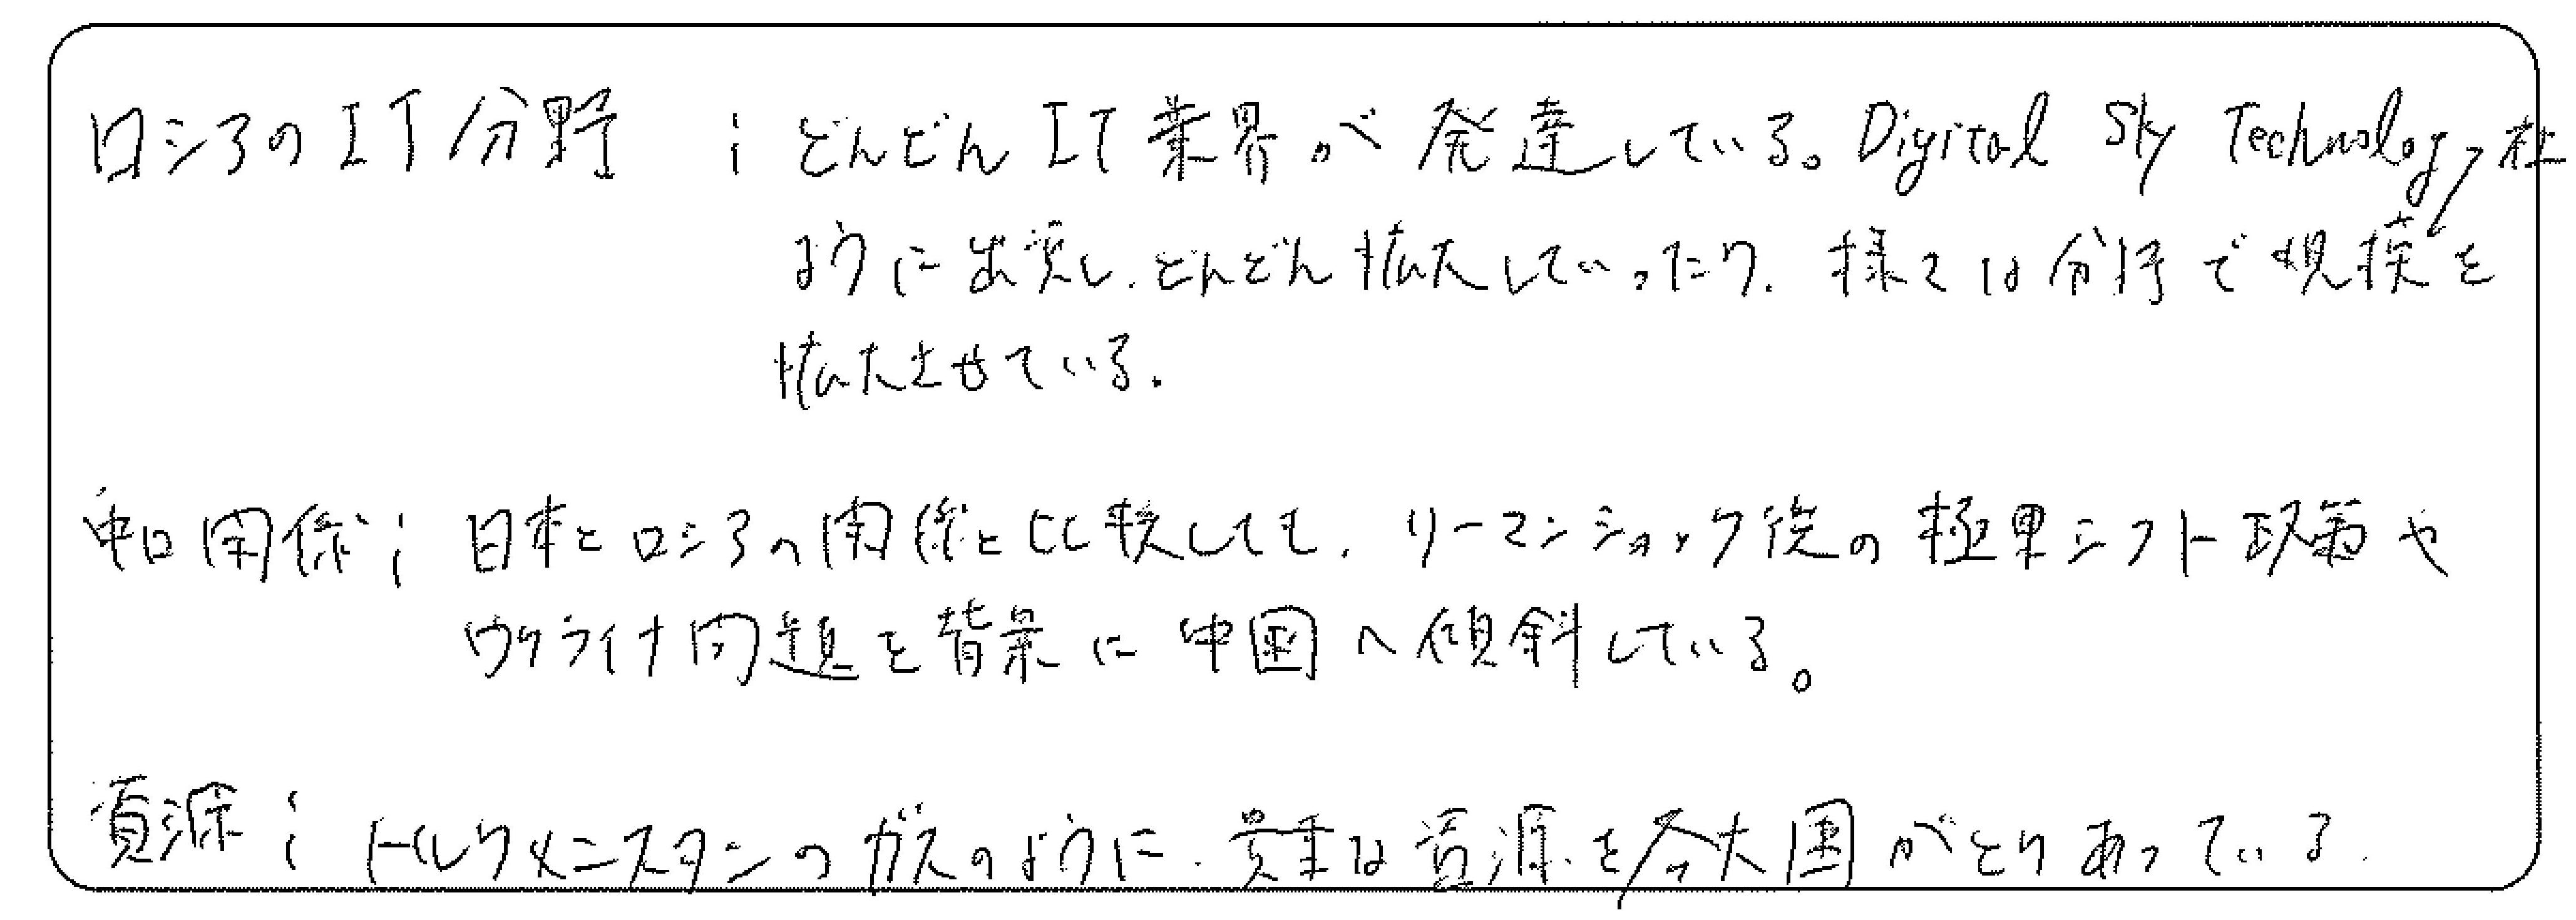 ロシアのIT分野 ; どんどんIT業界が発達している。Digital Sky Technology社
ように出資し、どんどん拡大していったり、様々な分野で規模を
拡大させている。
中ロ関係 ; 日本とロシアの関係と比較しても、リーマンショック後の極東シフト政策や
ウクライナ問題を背景に中国へ傾斜している。
資源 ; トルクメニスタンのガスのように、貴重な資源を各大国がとりあっている。